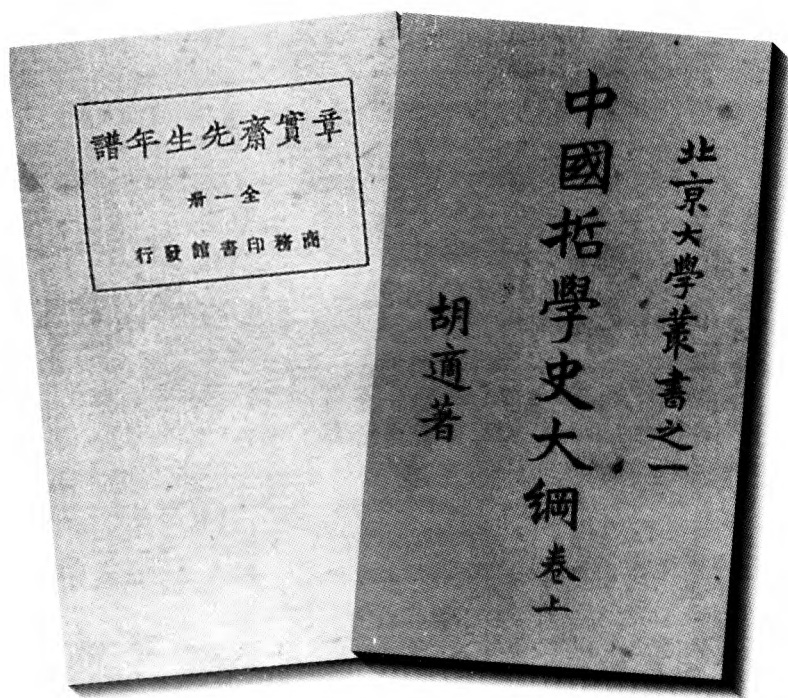 章實齋先生年譜
全一冊
商務印書館發行
北京大學叢書之一
中國哲學史大綱 卷上
胡適著